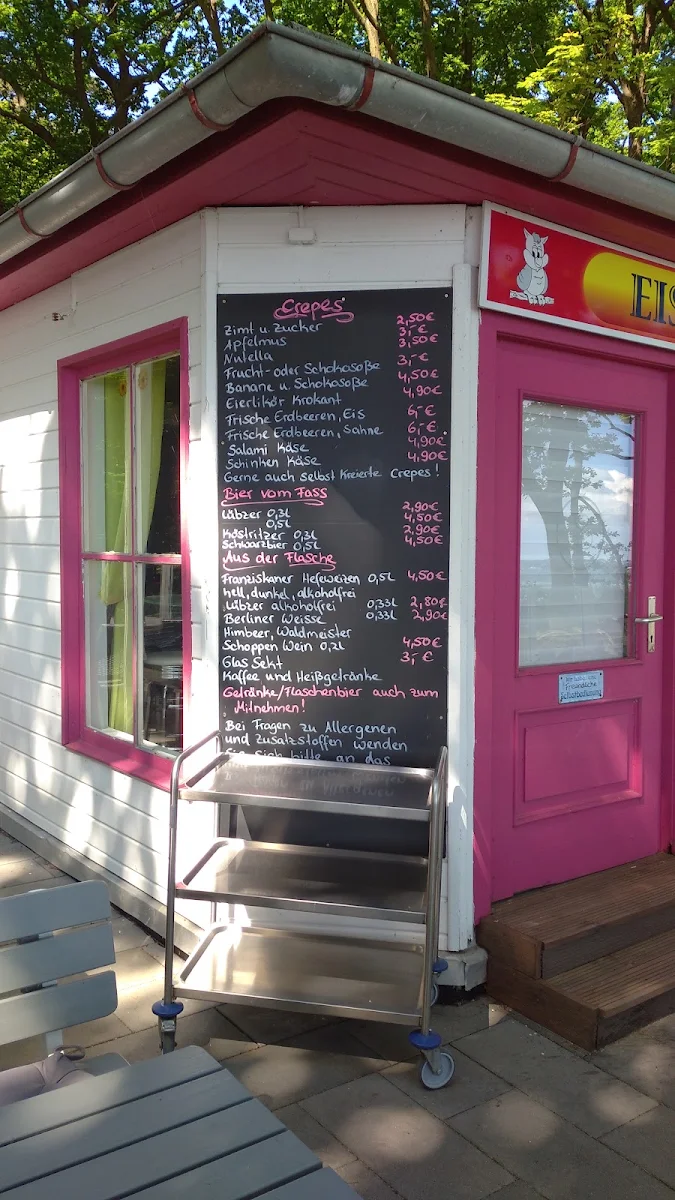 Crepes
Zimt u. Zucker 2,50€
Apfelmus 3,-€
Nutella 3,50€
Frucht- oder Schokosoße 3,-€
Banane u. Schokosoße 4,50€
Eierlikör Krokant 4,90€
Frische Erdbeeren, Eis 6,-€
Frische Erdbeeren, Sahne 6,-€
Salami Käse 4,90€
Schinken Käse 4,90€
Gerne auch selbst kreierte Crepes!
Bier vom Fass
Lübzer 0,3L 2,90€
0,5L 4,50€
Köstritzer 0,3L 2,90€
Schwarzbier 0,5L 4,50€
Aus der Flasche
Franziskaner Hefeweizen 0,5L 4,50€
hell, dunkel, alkoholfrei
Lübzer alkoholfrei 0,33L 2,80€
Berliner Weisse 0,33L 2,90€
Himbeer, Waldmeister
Schoppen Wein 0,2L 4,50€
Glas Sekt 3,-€
Kaffee und Heißgetränke
Getränke/Flaschenbier auch zum
Mitnehmen!
Bei Fragen zu Allergenen
und Zusatzstoffen wenden
Sie sich bitte an das
EIS
Selbstbedienung